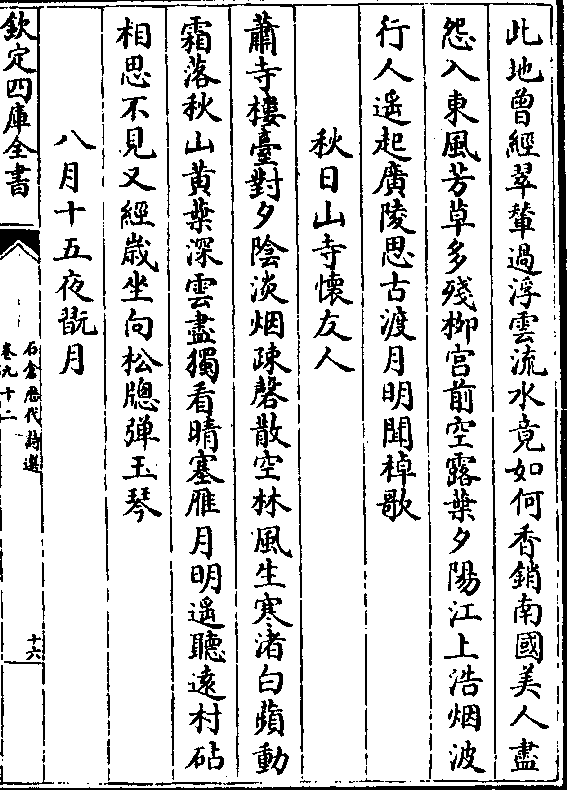 此地曾經翠輦過浮雲流水竟如何香銷南國美人盡
怨入東風芳草多殘栁宫前空露葉夕陽江上浩烟波
行人遥起廣陵思古渡月明聞棹歌
秋日山寺懷友人
蕭寺樓臺對夕陰淡烟疎磬散空林風生寒渚白蘋動
霜落秋山黄葉深雲盡獨看晴塞雁月明遥聽遠村砧
相思不見又經歳坐向松牎弹玉琴
八月十五夜翫月
欽定四庫全書
石倉歴代詩選
卷九十二
十六